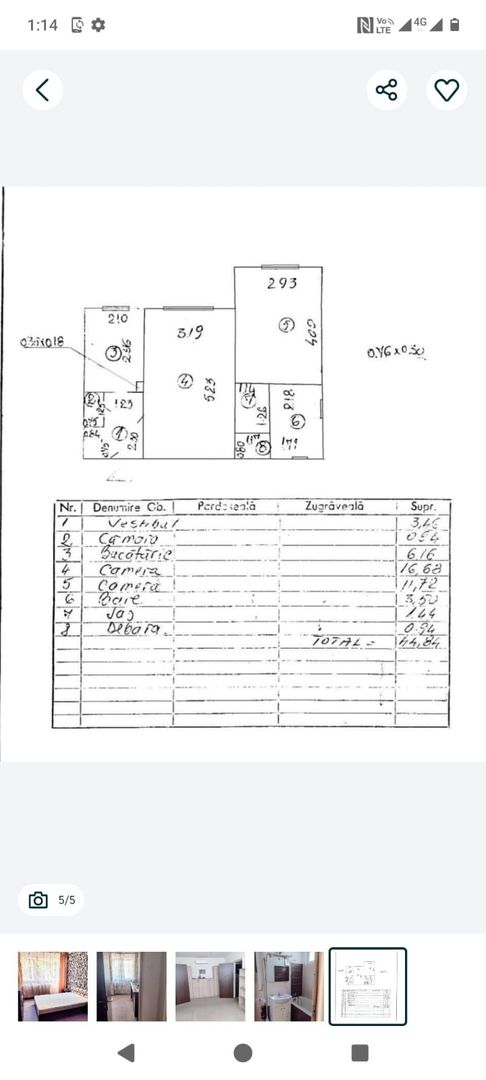 1:14 Vo LTE 4G
293
210
319
5
409
035x018
3
286
0.46x0.30
4
523
114
218
2
123
7
126
6
1
230
080
117
8
171
Nr. Denumire Cb. Pardoseală Zugrăveală Supr.
1 Vestibul 3,46
2 Camara 0.54
3 Bucatarie 6.16
4 Camera 16,68
5 Camera 11,72
6 Baie 3,50
7 Jag 1.44
8 Debara. 0.94
TOTAL = 44,84
5/5